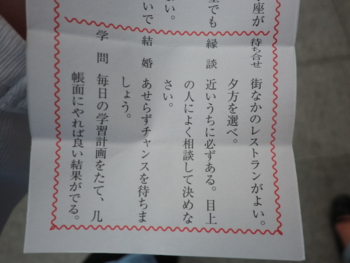 座が
座でも
いで
い。
待ち合せ 街なかのレストランがよい。
夕方を選べ。
縁談 近いうちに必ずある。目上
の人によく相談して決めな
さい。
結婚 あせらずチャンスを待ちま
しょう。
学問 毎日の学習計画をたて、几
帳面にやれば良い結果がでる。